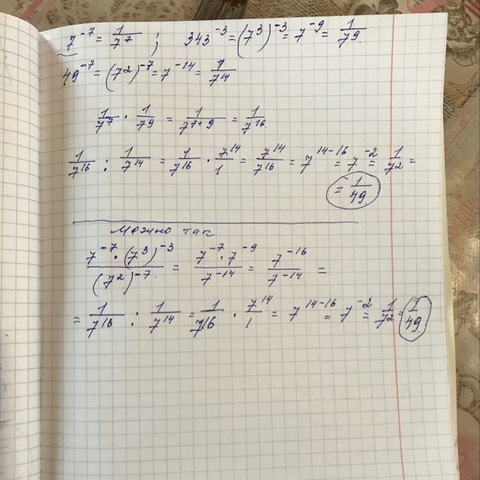 7⁻⁷ = 1/7⁷ ; 343⁻³ = (7³)⁻³ = 7⁻⁹ = 1/7⁹.
49⁻⁷ = (7²)⁻⁷ = 7⁻¹⁴ = 1/7¹⁴
1/7⁷ · 1/7⁹ = 1/7⁷⁺⁹ = 1/7¹⁶
1/7¹⁶ : 1/7¹⁴ = 1/7¹⁶ · 7¹⁴/1 = 7¹⁴/7¹⁶ = 7¹⁴⁻¹⁶ = 7⁻² = 1/7² =
= 1/49
Можно так
7⁻⁷ · (7³)⁻³/(7²)⁻⁷ = 7⁻⁷ · 7⁻⁹/7⁻¹⁴ = 7⁻¹⁶/7⁻¹⁴ =
= 1/7¹⁶ : 1/7¹⁴ = 1/7¹⁶ · 7¹⁴/1 = 7¹⁴⁻¹⁶ = 7⁻² = 1/7² = 1/49